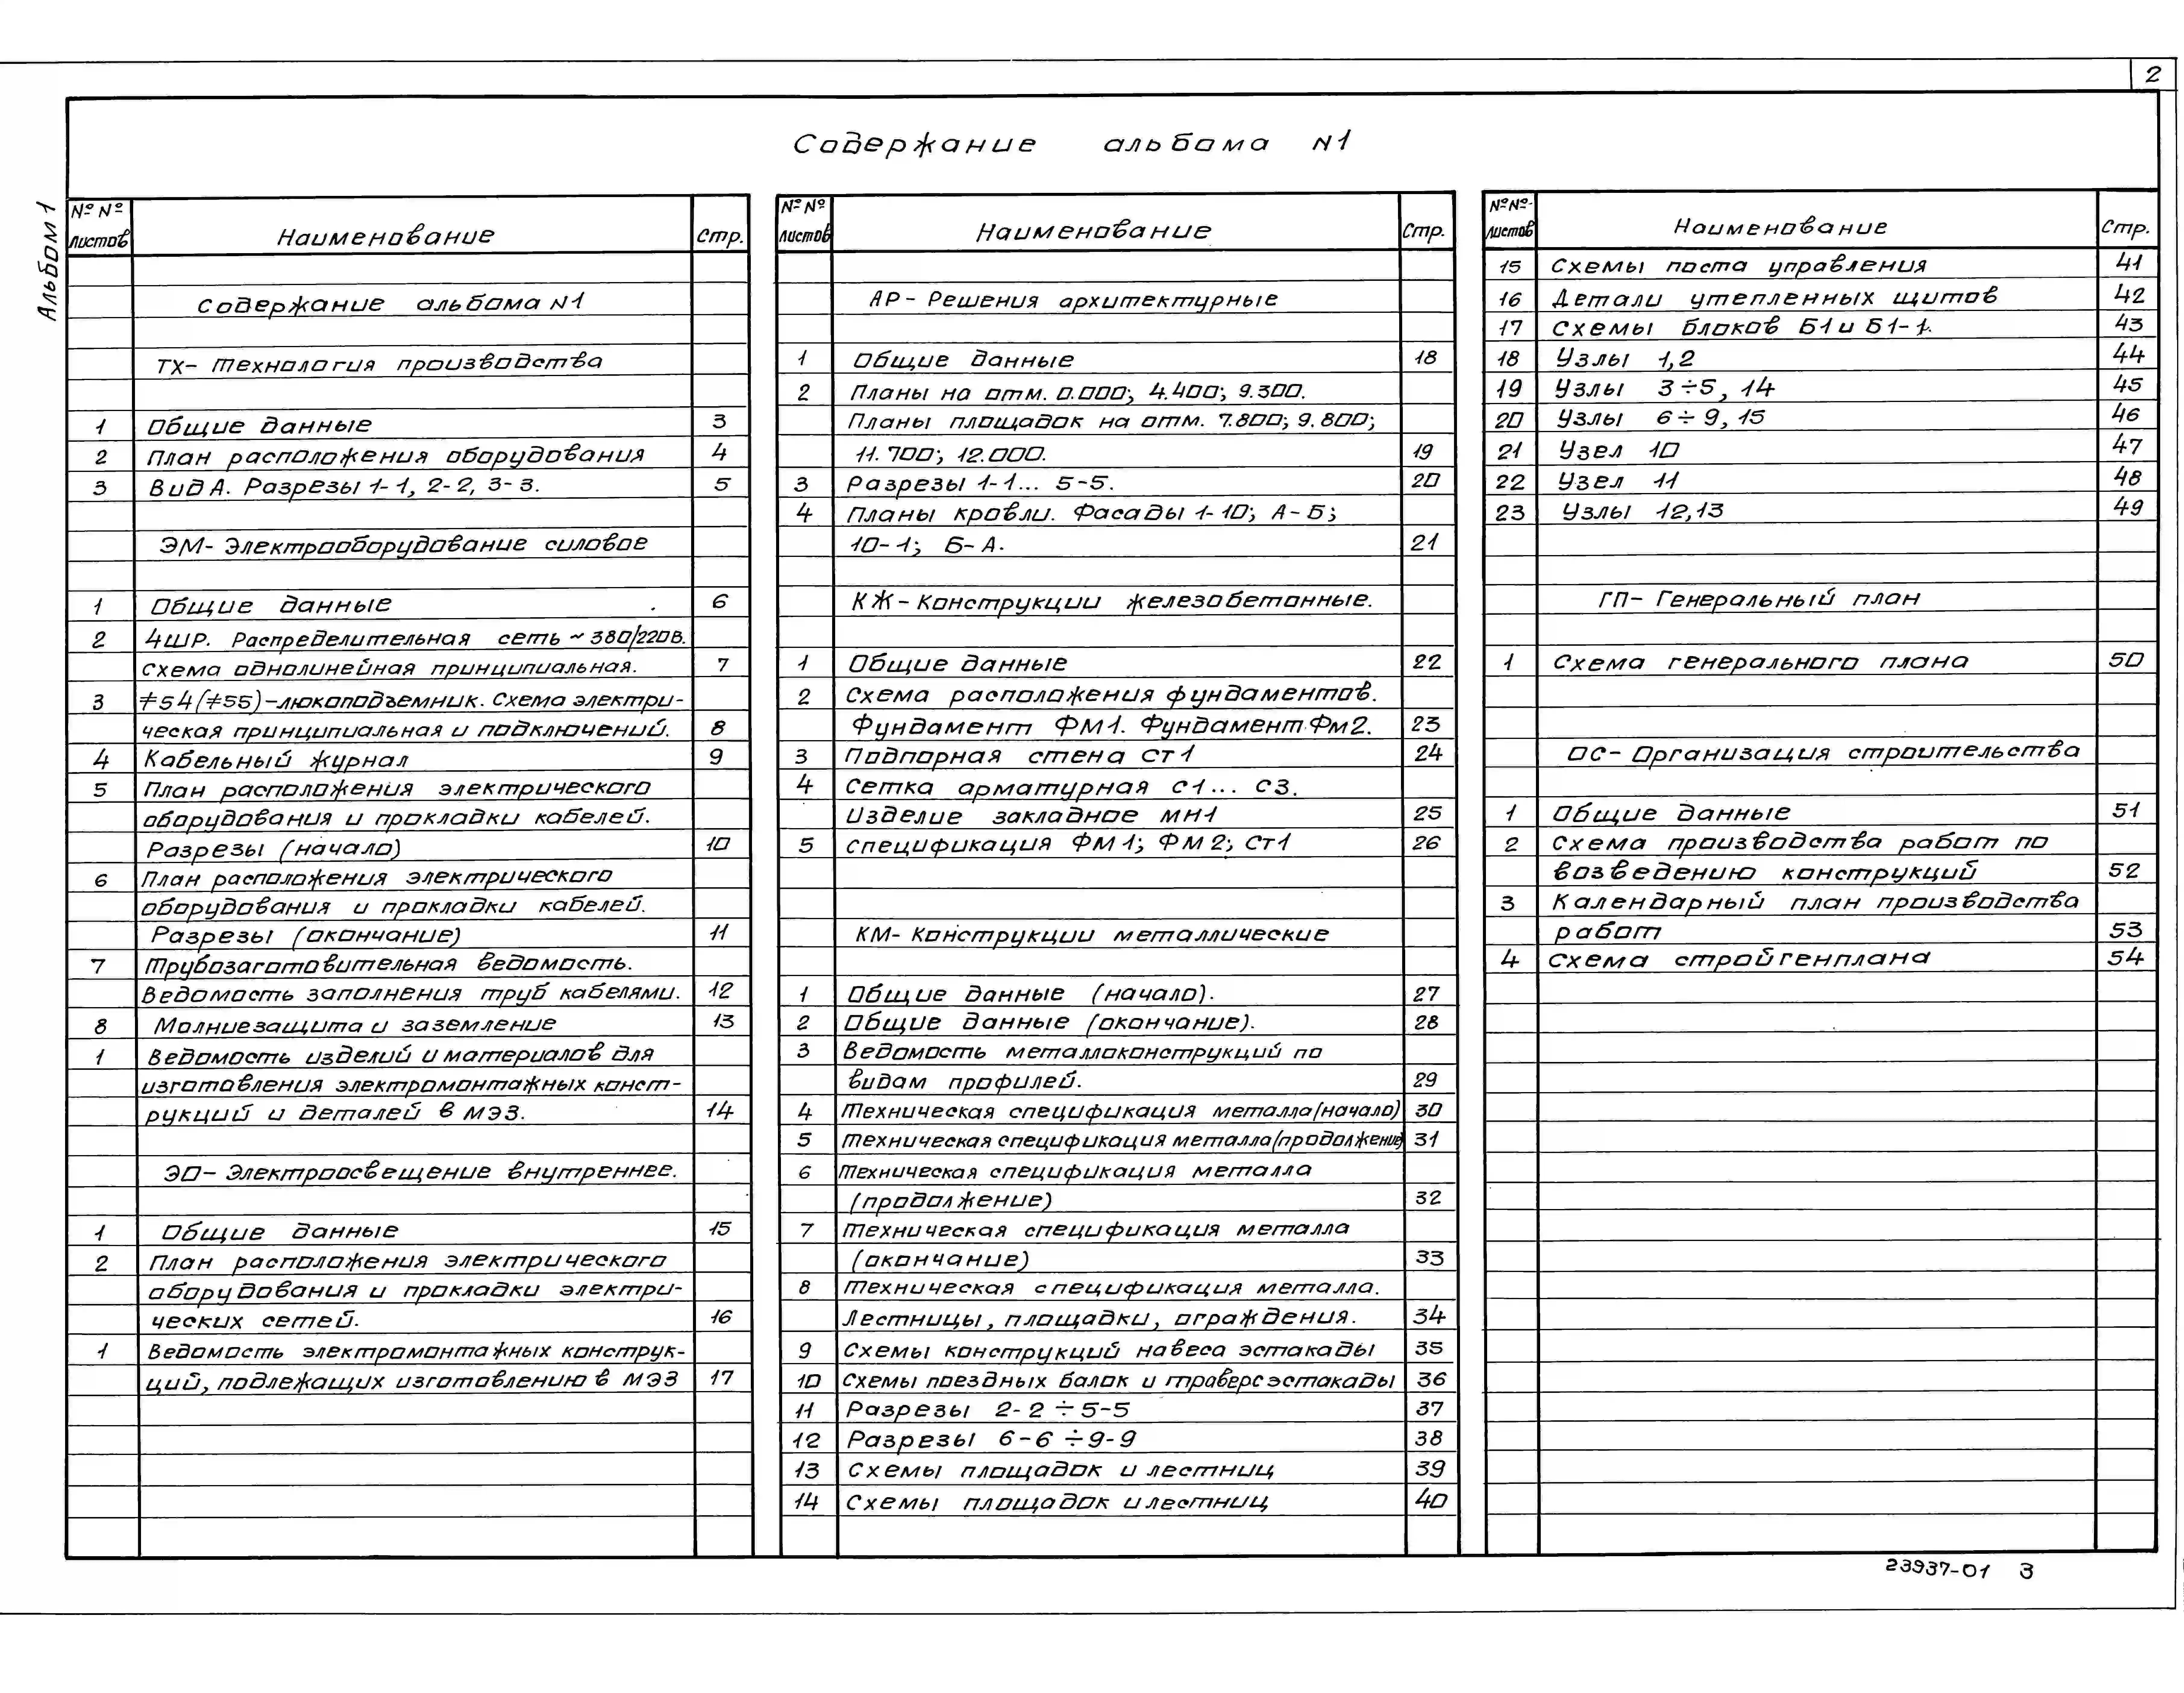 2
Содержание альбома N1
Альбом 1
№№ листов Наименование Стр.
Содержание альбома N1
ТХ- Технология производства
1 Общие данные 3
2 План расположения оборудования 4
3 Вид А. Разрезы 1-1, 2-2, 3-3. 5
ЭМ- Электрооборудование силовое
1 Общие данные 6
2 4ШР. Распределительная сеть ~ 380/220В.
Схема однолинейная принципиальная. 7
3 ≠54(≠55)-люкоподъемник. Схема электри-
ческая принципиальная и подключений. 8
4 Кабельный журнал 9
5 План расположения электрического
оборудования и прокладки кабелей.
Разрезы (начало) 10
6 План расположения электрического
оборудования и прокладки кабелей.
Разрезы (окончание) 11
7 Трубозаготовительная ведомость.
Ведомость заполнения труб кабелями. 12
8 Молниезащита и заземление 13
1 Ведомость изделий и материалов для
изготовления электромонтажных конст-
рукций и деталей в МЭЗ. 14
ЭО- Электроосвещение внутреннее.
1 Общие данные 15
2 План расположения электрического
оборудования и прокладки электри-
ческих сетей. 16
1 Ведомость электромонтажных конструк-
ций, подлежащих изготовлению в МЭЗ 17
№№ листов Наименование Стр.
АР- Решения архитектурные
1 Общие данные 18
2 Планы на отм. 0.000; 4.400; 9.300.
Планы площадок на отм. 7.800; 9.800;
11.700; 12.000. 19
3 Разрезы 1-1... 5-5. 20
4 Планы кровли. Фасады 1-10; А-Б;
10-1; Б-А. 21
КЖ- Конструкции железобетонные.
1 Общие данные 22
2 Схема расположения фундаментов.
Фундамент ФМ1. Фундамент Фм2. 23
3 Подпорная стена СТ1 24
4 Сетка арматурная С1... С3.
Изделие закладное МН1 25
5 Спецификация ФМ1; ФМ2; Ст1 26
КМ- Конструкции металлические
1 Общие данные (начало). 27
2 Общие данные (окончание). 28
3 Ведомость металлоконструкций по
видам профилей. 29
4 Техническая спецификация металла(начало) 30
5 Техническая спецификация металла(продолжение) 31
6 Техническая спецификация металла
(продолжение) 32
7 Техническая спецификация металла
(окончание) 33
8 Техническая спецификация металла.
Лестницы, площадки, ограждения. 34
9 Схемы конструкций навеса эстакады 35
10 Схемы поездных балок и траверс эстакады 36
11 Разрезы 2-2 ÷ 5-5 37
12 Разрезы 6-6 ÷ 9-9 38
13 Схемы площадок и лестниц 39
14 Схемы площадок и лестниц 40
№№ листов Наименование Стр.
15 Схемы поста управления 41
16 Детали утепленных щитов 42
17 Схемы блоков Б1 и Б1-1. 43
18 Узлы 1,2 44
19 Узлы 3÷5, 14 45
20 Узлы 6÷9, 15 46
21 Узел 10 47
22 Узел 11 48
23 Узлы 12,13 49
ГП- Генеральный план
1 Схема генерального плана 50
ОС- Организация строительства
1 Общие данные 51
2 Схема производства работ по
возведению конструкций 52
3 Календарный план производства
работ 53
4 Схема стройгенплана 54
23937-01 3